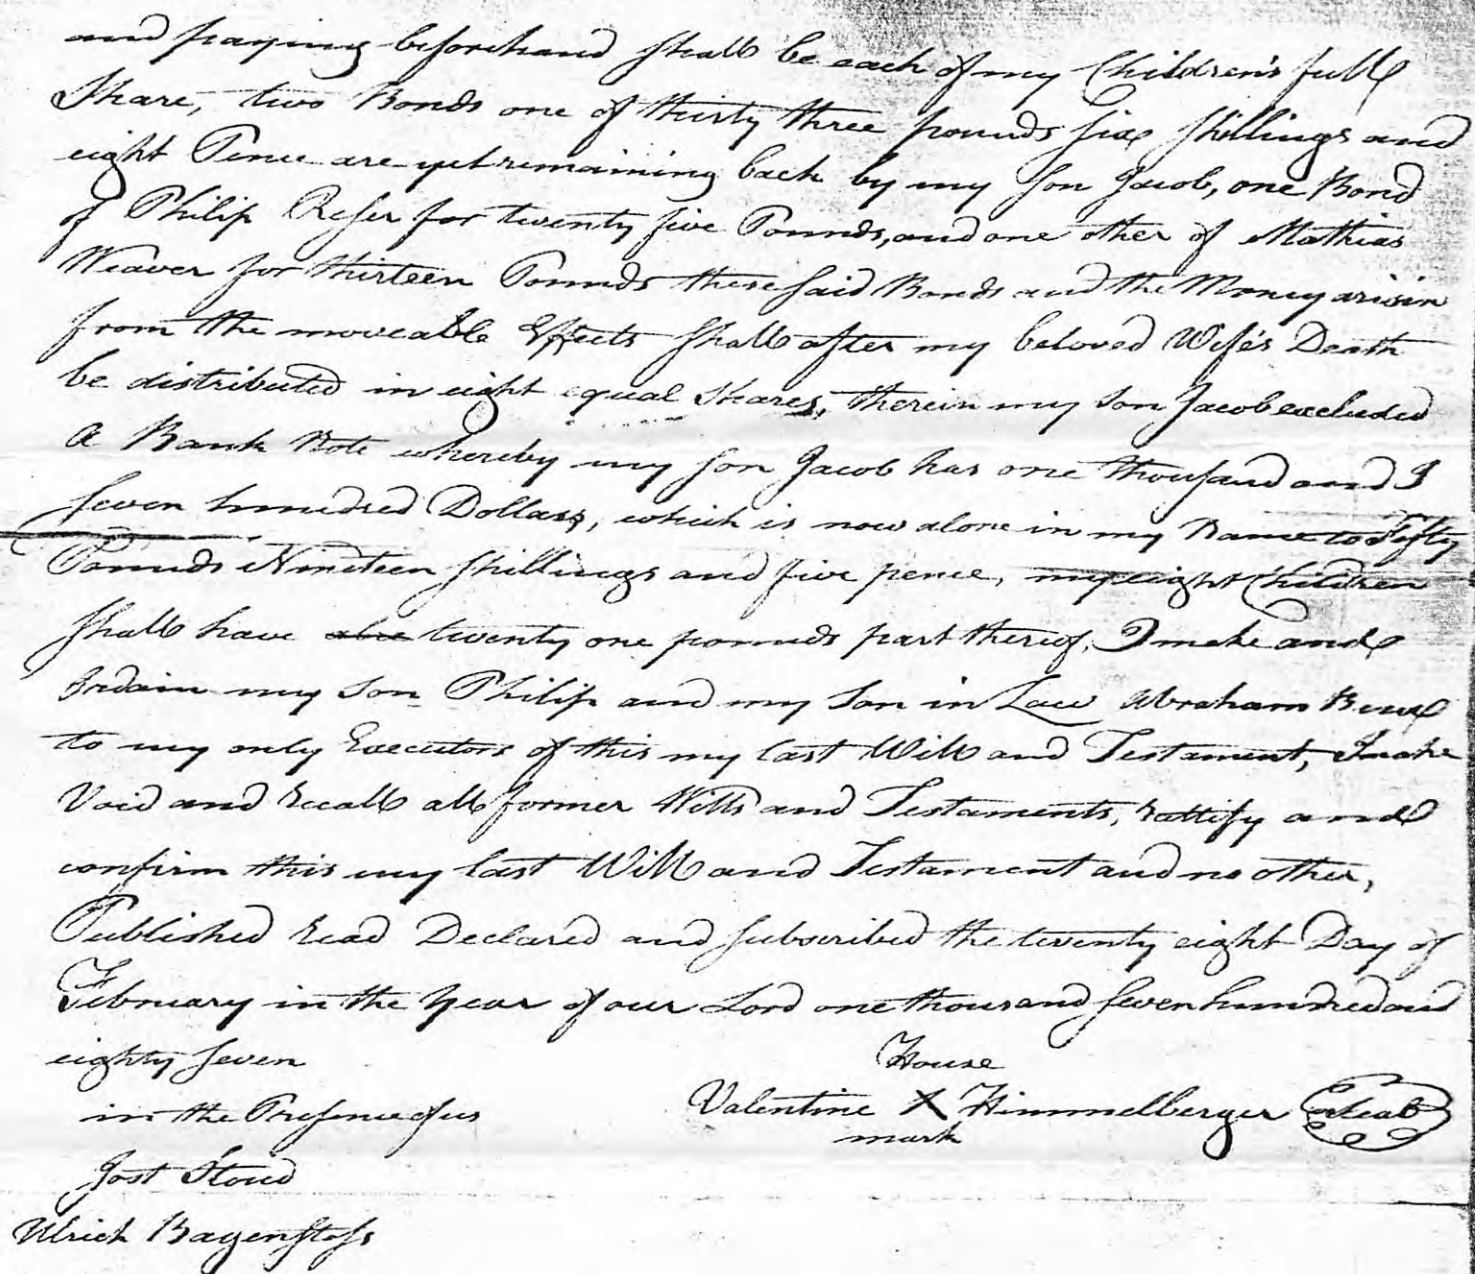 and paying beforehand shall be each of my Children's full
Share, two Bonds one of thirty three pounds six shillings and
eight Pence are yet remaining back by my son Jacob, one Bond
of Philip Reser for twenty five Pounds, and one other of Mathias
Weaver for thirteen Pounds these said Bonds and the Money arisin
from the moveable Effects shall after my beloved Wife's Death
be distributed in eight equal Shares, therein my son Jacob excluded
A Bank Note whereby my son Jacob has one thousand and I
seven hundred Dollars, which is now alone in my Name to Fifty
Pounds Nineteen shillings and five pence, my eight Children
shall have twenty one pounds part thereof, I make and
Ordain my Son Philip and my Son in Law Abraham
to my only Executors of this my last Will and Testament, I make
Void and recall all former Wills and Testaments, rattify and
confirm this my last Will and Testament and no other,
Published read Declared and subscribed the twenty eight Day of
February in the Year of our Lord one thousand seven hundred and
eighty seven
in the Presence of us
House
Valentine X Himmelberger Seal
mark
Jost Stoud
Ulrich Bagenstoss